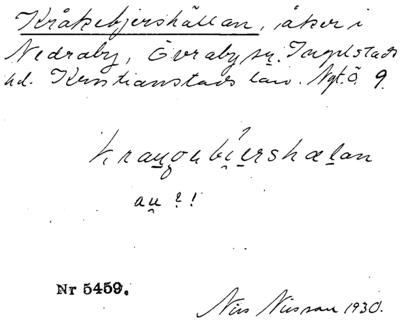 Kråkebjershällan, åker i
Nedraby, Övraby sn. Ingelstads
hd. Kristianstads län. Nyt. Ö 9.
krau̯ǫubi̯ershælan
au̯ ?!
Nr 5459.
Nils Nilsson 1930.